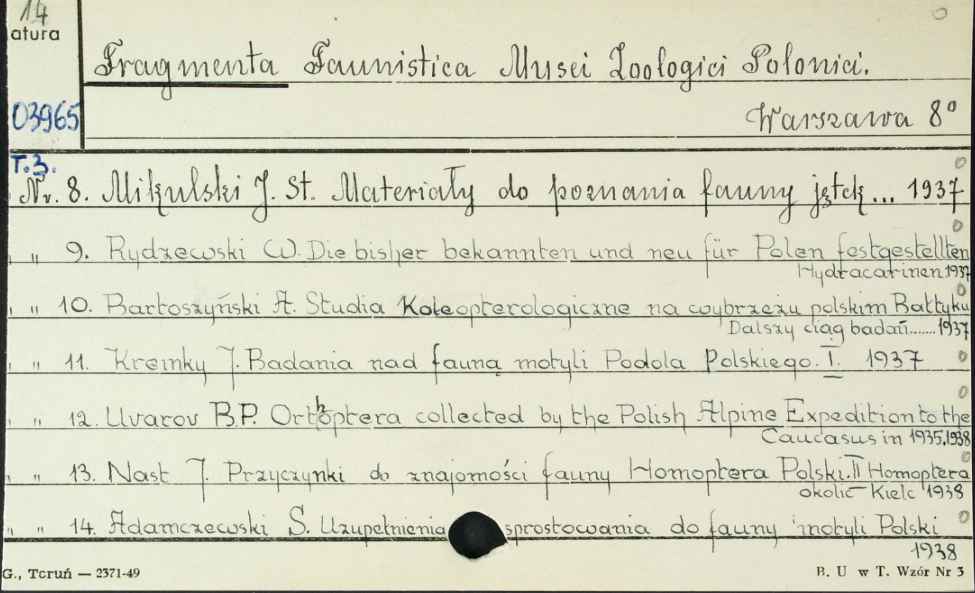 14
atura
Fragmenta Faunistica Musei Zoologici Polonici.
03965
Warszawa 8°
T.3.
Nr. 8. Mikulski J. St. Materiały do poznania fauny jętek... 1937
" " 9. Rydzewski W. Die bisher bekannten und neu für Polen festgestellten
Hydracarinen 1937
" " 10. Bartoszyński A. Studia Koleopterologiczne na wybrzeżu polskim Bałtyku
Dalszy ciąg badań....... 1937
" " 11. Kremky J. Badania nad fauną motyli Podola Polskiego. I. 1937
" " 12. Uvarov B.P. Orthoptera collected by the Polish Alpine Expedition to the
Caucasus in 1935. 1938
" " 13. Nast J. Przyczynki do znajomości fauny Homoptera Polski. II Homoptera
okolic Kielc 1938
" " 14. Adamczewski S. Uzupełnienia sprostowania do fauny motyli Polski
1938
G., Toruń — 2371-49
B. U w T. Wzór Nr 3